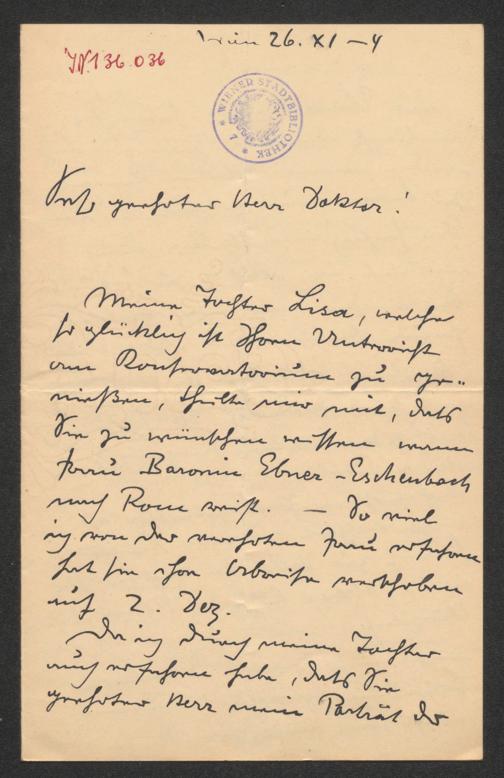 Wien 26. XI – 4
IN.136.036
WIENER STADTBIBLIOTHEK
Sehr geehrter Herr Doktor!
Meine Tochter Lisa, welche
so glücklich ist Ihren Unterricht
am Konservatorium zu ge=
nießen, theilte mir mit, dass
Sie zu wünschen wissen wann
Frau Baronin Ebner-Eschenbach
nach Rom reist. — So viel
ich von der verehrten Frau erfahren
hat sie ihre Abreise verschoben
auf 2. Dez.
Da ich durch meine Tochter
auch erfahren habe, dass Sie
geehrter Herr mein Porträt der